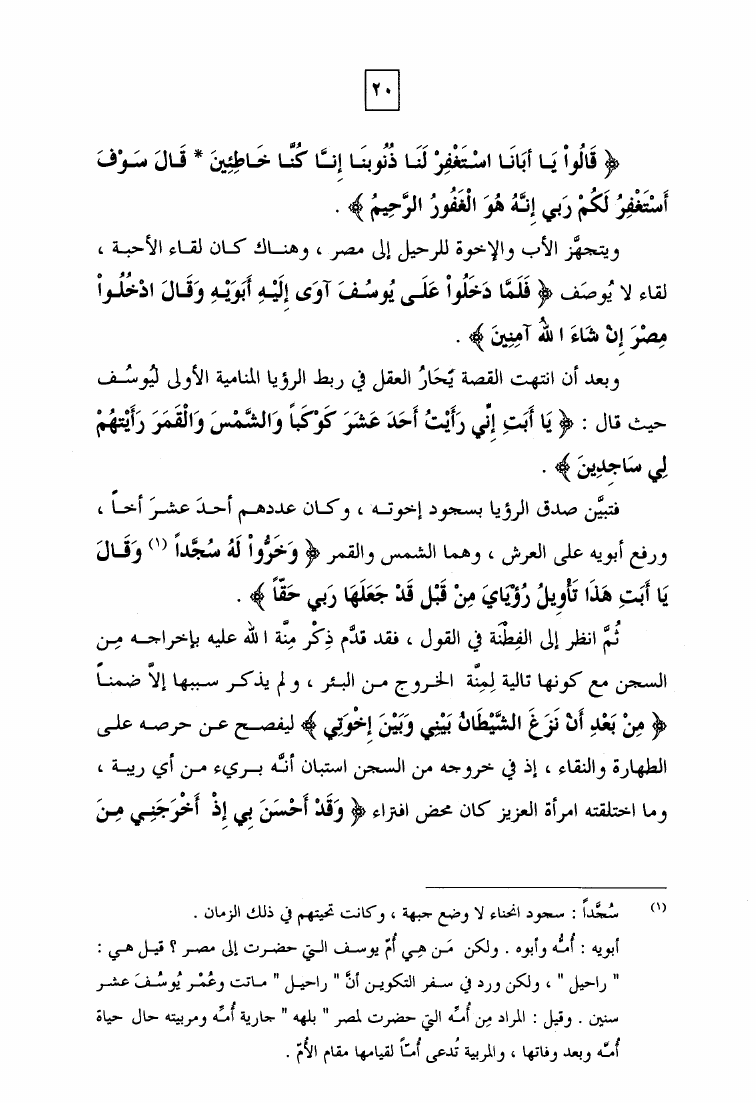 ٢٠
﴿ قَالُواْ يَـا أَبَانَـا اسْـتَغْفِرْ لَنَـا ذُنُوبنَـا إِنَّـا كُنَّـا خَـاطِئِينَ * قَـالَ سَـوْفَ
أَسْتَغْفِرُ لَكُمْ رَبِي إِنَّهُ هُوَ الْغَفُورُ الرَّحِيمُ ﴾ .
ويتجهَّز الأب والإخوة للرحيل إلى مصر ، وهنـاك كـان لقـاء الأحبـة ،
لقاء لا يُوصَف ﴿ فَلَمَّا دَخَلُواْ عَلَـى يُوسُـفَ آوَى إِلَيْـهِ أَبَوَيْـهِ وَقَـالَ ادْخُلُـواْ
مِصْرَ إِنْ شَاءَ اللهُ آمِنِينَ ﴾ .
وبعد أن انتهت القصة يَحَارُ العقل في ربط الرؤيا المنامية الأولى ليُوسُـف
حيث قال : ﴿ يَا أَبَتِ إِنِّي رَأَيْتُ أَحَدَ عَشَرَ كَوْكَباً وَالشَّمْسَ وَالْقَمَرَ رَأَيْتهُمْ
لِي سَاجِدِينَ ﴾ .
فتبيَّن صدق الرؤيا بسجود إخوتـه ، وكـان عددهـم أحـدَ عشـرَ أخـاً ،
ورفع أبويه على العرش ، وهما الشمس والقمر ﴿ وَخَرُّواْ لَهُ سُجَّداً (١) وَقَـالَ
يَا أَبَتِ هَذَا تَأْوِيلُ رُؤْيَايَ مِنْ قَبْل قَدْ جَعَلَهَا رَبِي حَقّاً ﴾ .
ثُمَّ انظر إلى الفِطْنَة في القول ، فقد قدَّم ذِكْر مِنَّة الله عليه بإخراجـه مـن
السجن مع كونها تالية لِمِنَّة الخروج مـن البـئر ، و لم يذكـر سـببها إلاّ ضمنـاً
﴿ مِنْ بَعْدِ أَنْ نَزَغَ الشَّيْطَانُ بَيْنِي وَبَيْنَ إِخْوَتِي ﴾ ليفصـح عـن حرصـه علـى
الطهارة والنقاء ، إذ في خروجه من السجن استبان أنَّه بـريء مـن أي ريبـة ،
وما اختلقته امرأة العزيز كان محض افتراء ﴿ وَقَدْ أَحْسَنَ بِي إِذْ أَخْرَجَنِـي مِـنَ
(١) سُجَّداً : سجود انحناء لا وضع جبهة ، وكانت تحيتهم في ذلك الزمان .
أبويه : أُمُّه وأبوه . ولكن مَـن هـي أُمّ يوسـف الـتي حضـرت إلى مصـر ؟ قيـل هـي :
" راحيل " ، ولكن ورد في سفر التكويـن أنَّ " راحيـل " مـاتت وعُمْـر يُوسُـفَ عشـر
سنين . وقيل : المراد مِن أُمِّه التي حضرت لمصر " بلهه " جارية أُمِّه ومربيته حال حياة
أُمِّه وبعد وفاتها ، والمربية تُدعى أُمـّاً لقيامها مقام الأُمّ .